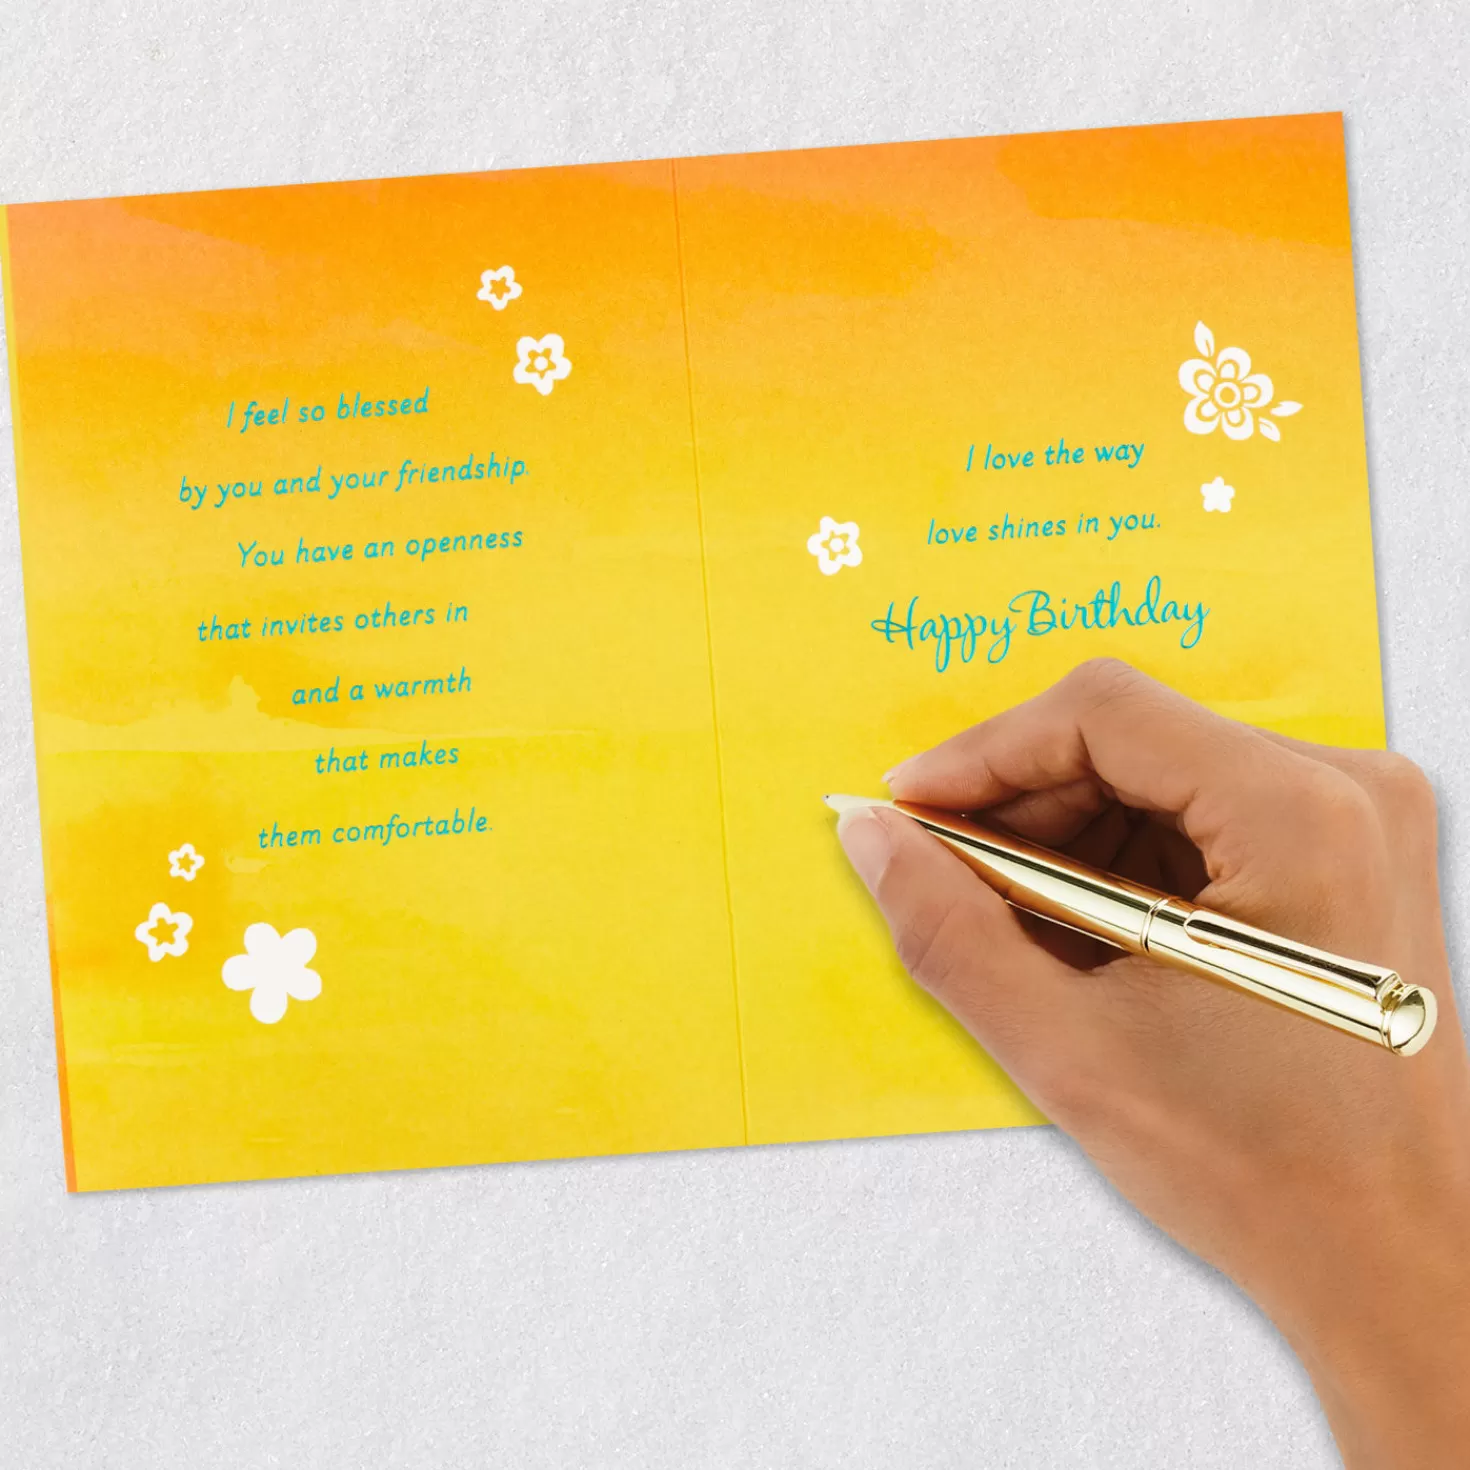 I feel so blessed
by you and your friendship.
You have an openness
that invites others in
and a warmth
that makes
them comfortable.
I love the way
love shines in you.
Happy Birthday